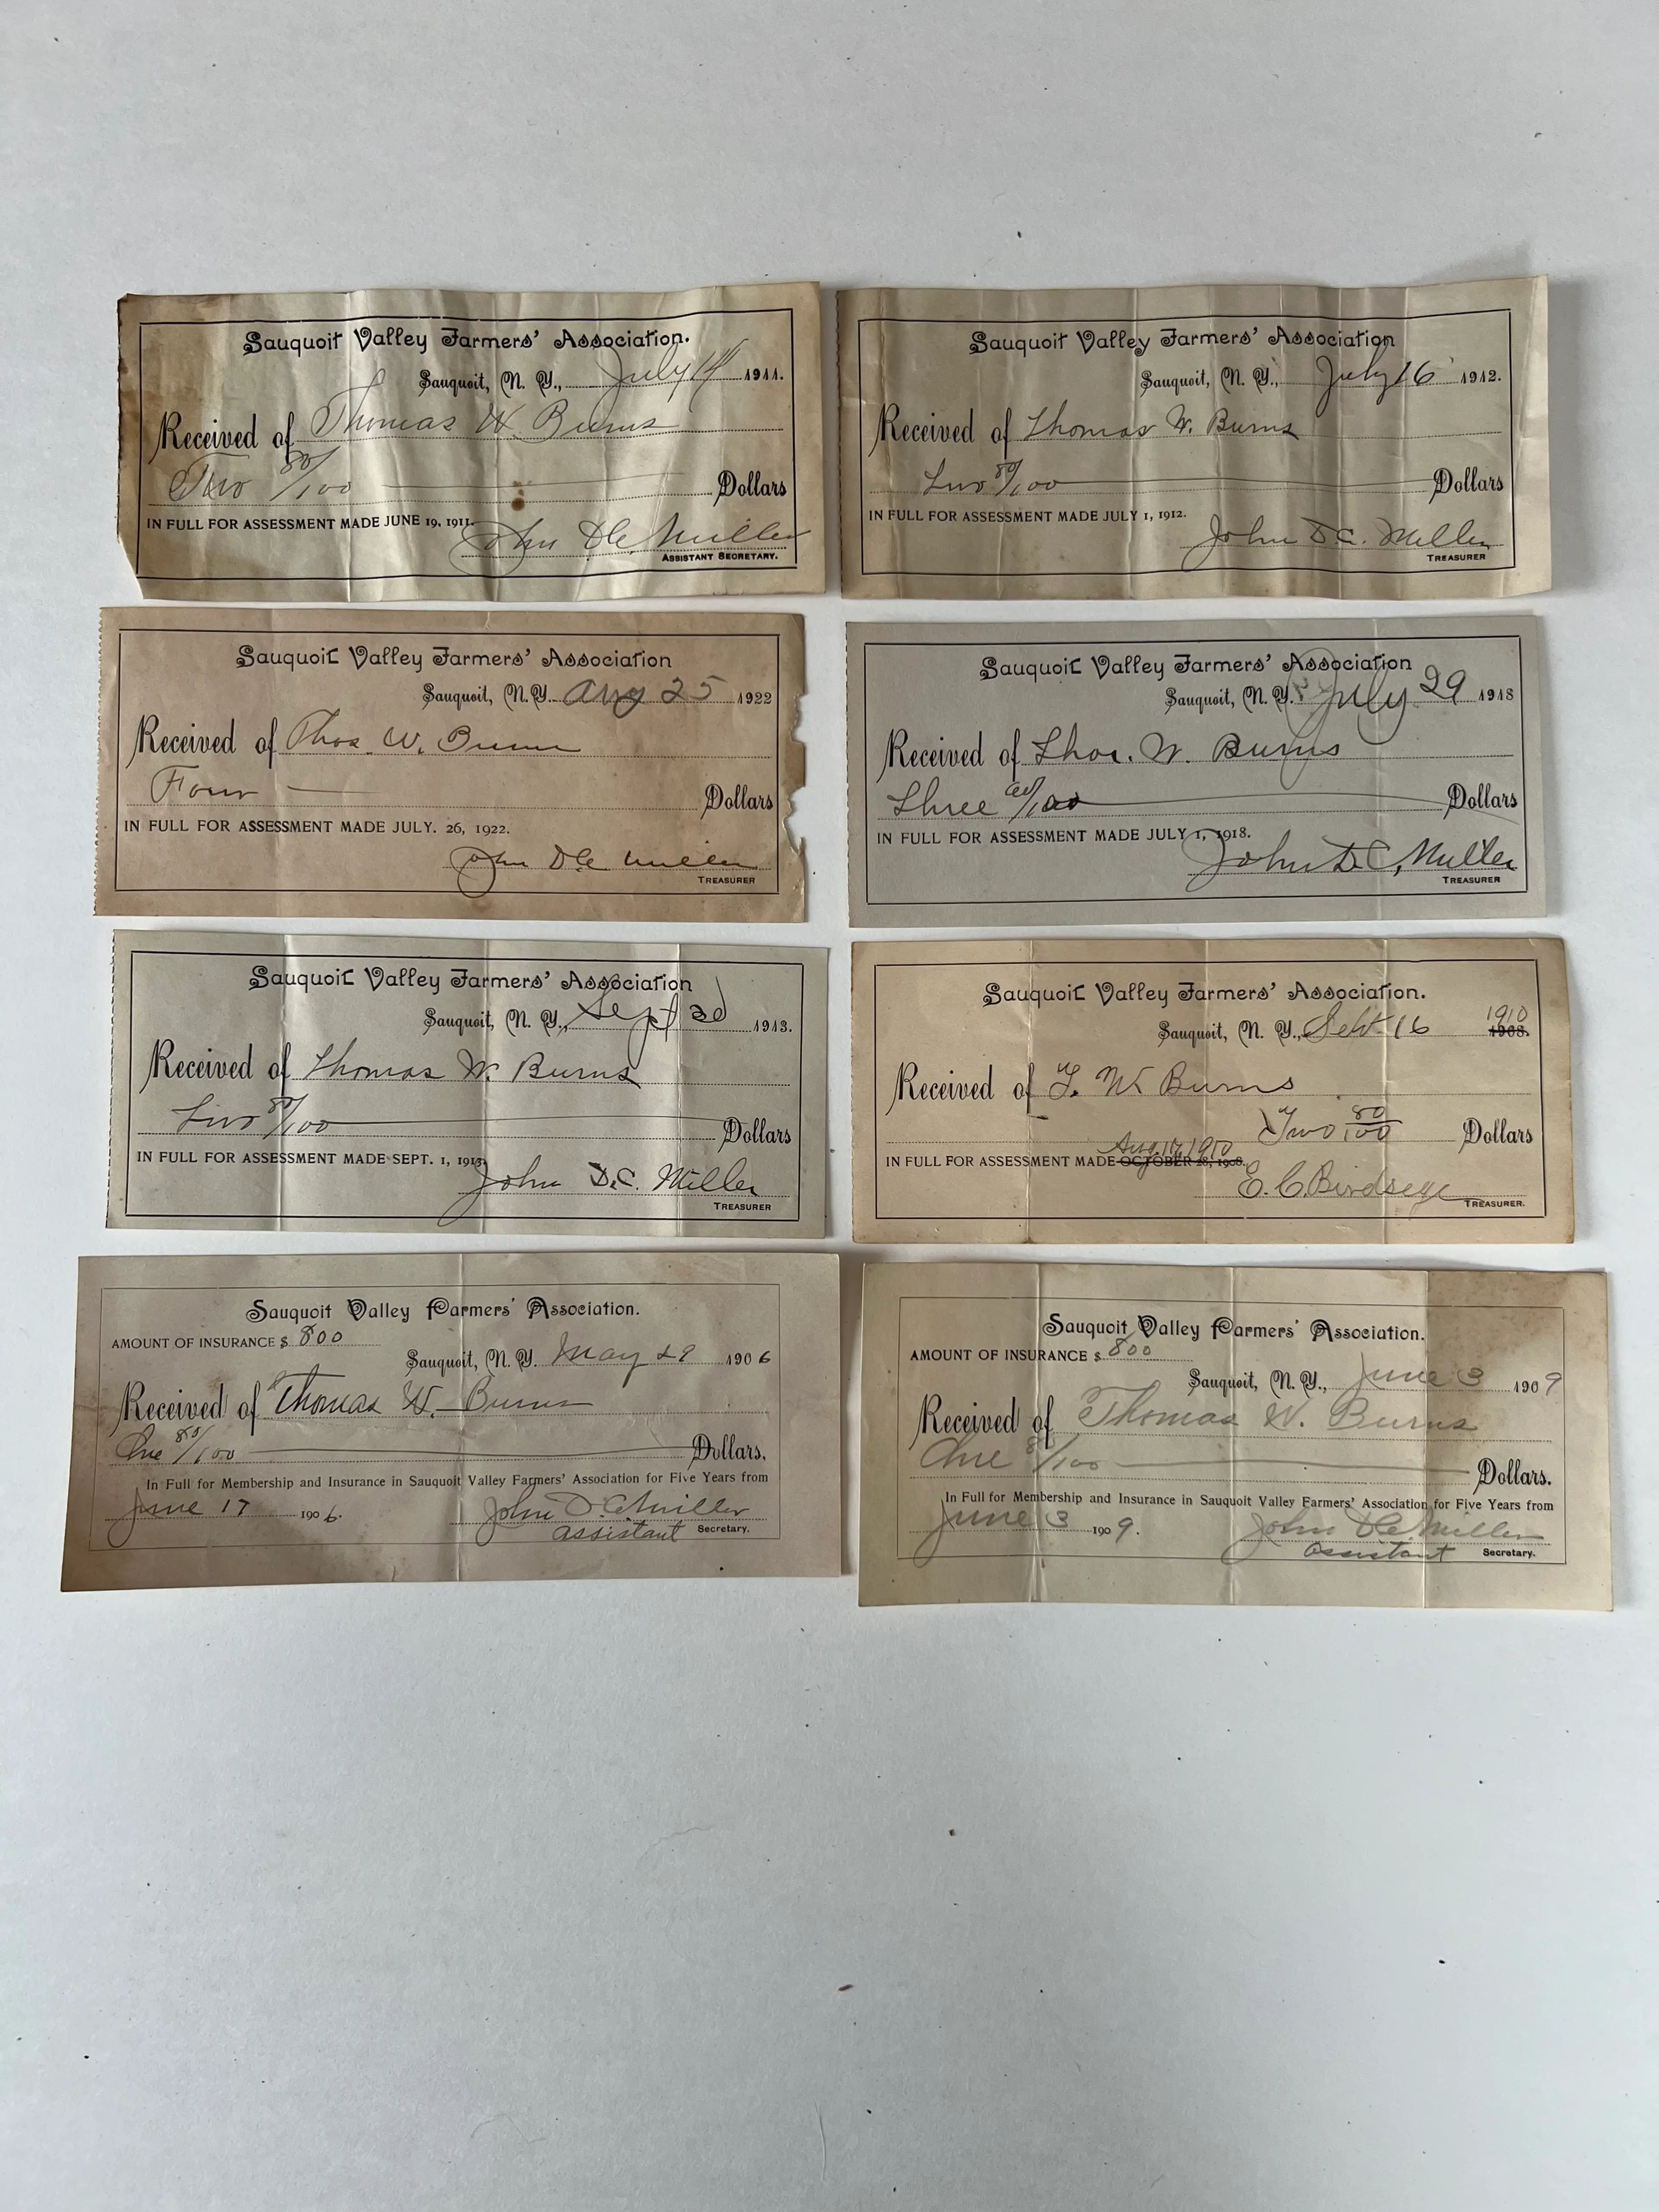 Sauquoit Valley Farmers' Association.
Sauquoit, N. Y., July 14 1911.
Received of Thomas W. Burns
Two 80/100 Dollars
IN FULL FOR ASSESSMENT MADE JUNE 19, 1911.
John D.C. Miller
ASSISTANT SECRETARY.
Sauquoit Valley Farmers' Association
Sauquoit, N. Y., July 16 1912.
Received of Thomas W. Burns
Two 80/100 Dollars
IN FULL FOR ASSESSMENT MADE JULY 1, 1912.
John D.C. Miller
TREASURER
Sauquoit Valley Farmers' Association
Sauquoit, N. Y. Aug 25 1922
Received of Thos W. Burns
Four Dollars
IN FULL FOR ASSESSMENT MADE JULY. 26, 1922.
John D.C. Miller
TREASURER
Sauquoit Valley Farmers' Association
Sauquoit, N. Y. July 29 1918
Received of Thos. W. Burns
Three /100 Dollars
IN FULL FOR ASSESSMENT MADE JULY 1, 1918.
John D.C. Miller
TREASURER
Sauquoit Valley Farmers' Association
Sauquoit, N. Y., Sept 1913.
Received of Thomas W. Burns
Two 80/100 Dollars
IN FULL FOR ASSESSMENT MADE SEPT. 1, 1913.
John D.C. Miller
TREASURER
Sauquoit Valley Farmers' Association.
1910
Sauquoit, N. Y., Sept. 16 1908.
Received of T. W. Burns
Two 80/100 Dollars
Aug. 1910
IN FULL FOR ASSESSMENT MADE OCTOBER 28, 1908.
E. C. Birdseye
TREASURER.
Sauquoit Valley Farmers' Association.
AMOUNT OF INSURANCE $ 800
Sauquoit, N. Y. May 29 1906
Received of Thomas W. Burns
One 80/100 Dollars.
In Full for Membership and Insurance in Sauquoit Valley Farmers' Association for Five Years from
June 17 1906.
John D.C. Miller
assistant Secretary.
Sauquoit Valley Farmers' Association.
AMOUNT OF INSURANCE $ 800
Sauquoit, N. Y., June 3 1909
Received of Thomas W. Burns
One 80/100 Dollars.
In Full for Membership and Insurance in Sauquoit Valley Farmers' Association for Five Years from
June 3 1909.
John D.C. Miller
assistant Secretary.